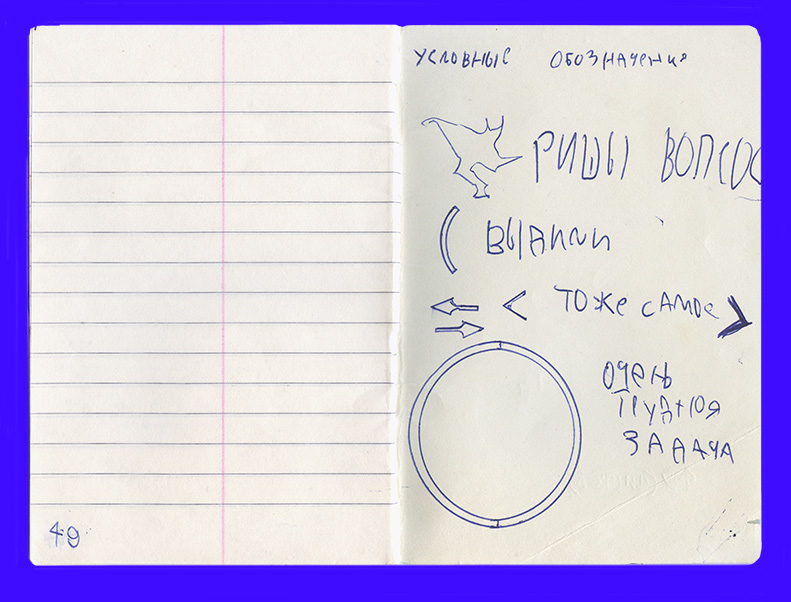 49
УСЛОВНЫЕ ОБОЗНАЧЕНИЯ
РИШЫ ВОПСОС
ВЫДИЛИ
< ТОЖЕ САМОЕ >
ОЧЕНЬ
ТРУДНЮЯ
ЗАДАЧА